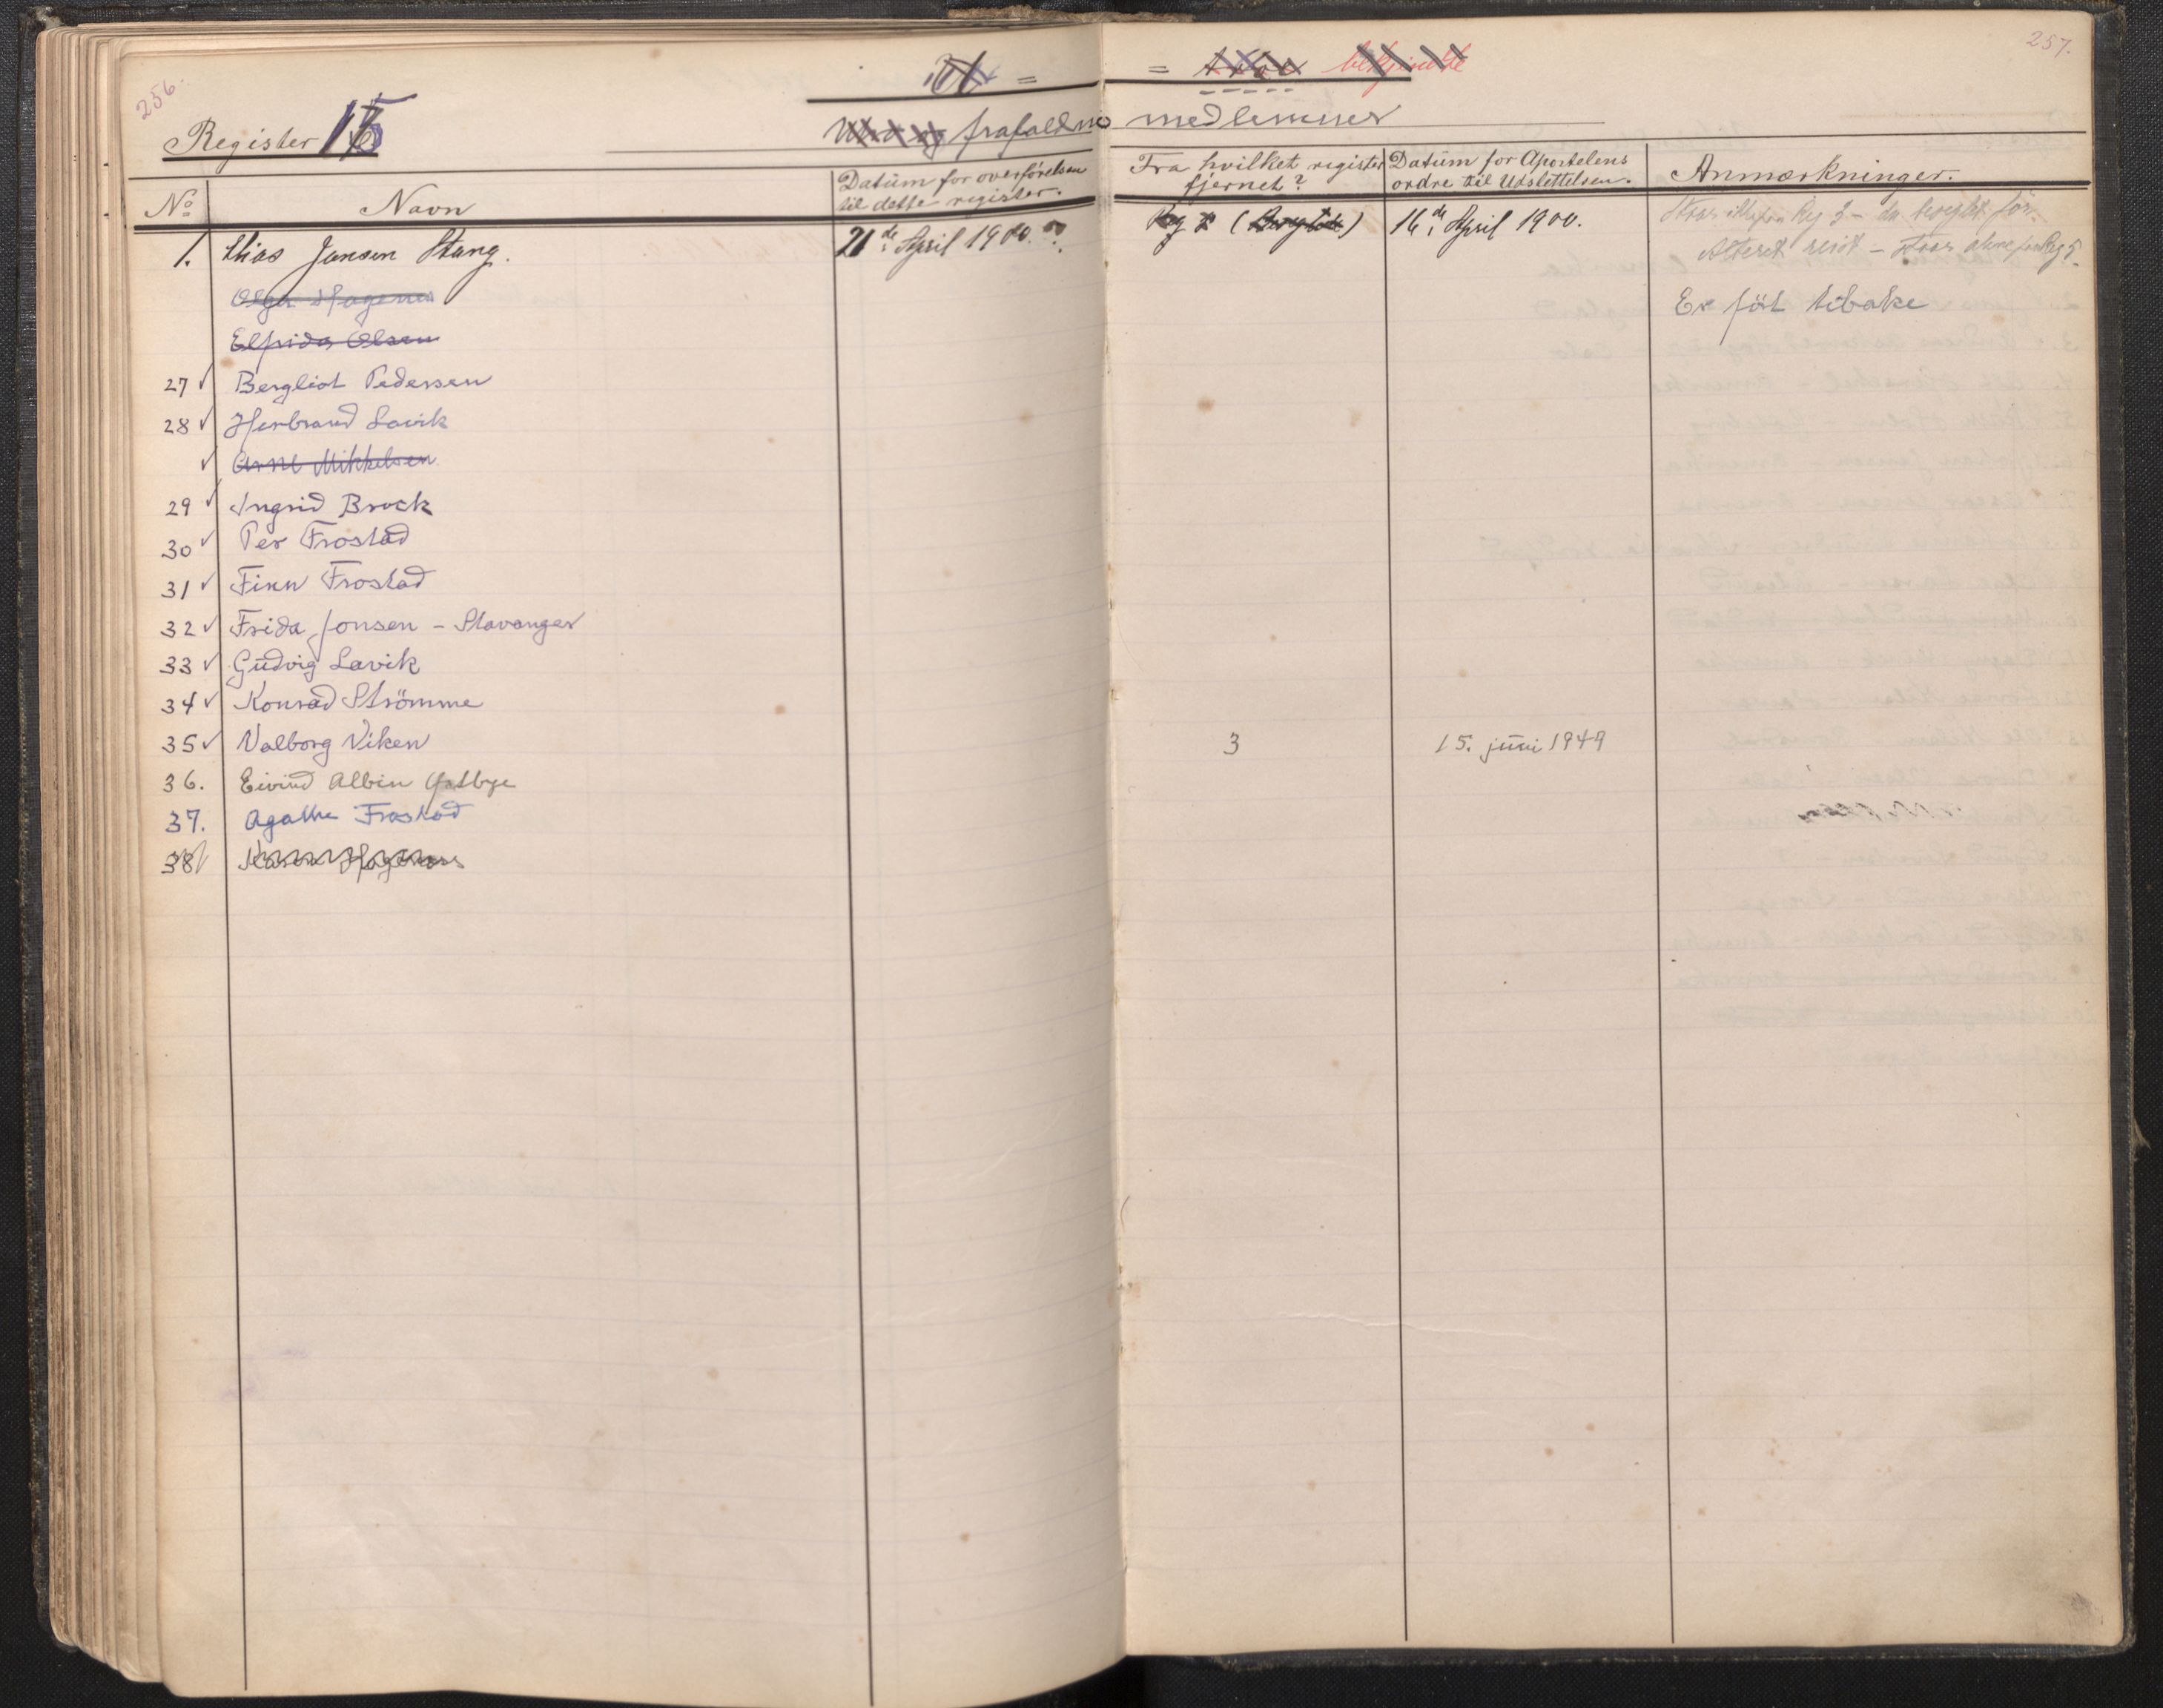 256.
257.
Register 15
frafaldne medlemmer
No Navn Datum for overförelsen til dette register. Fra hvilket register fjernet? Datum for Apostelens ordre til Udslettelsen. Anmærkninger.
1. Elias Jensen Stang. 21de April 1900. ? Reg 16de April 1900.
Olga Hagenes Er fört tibake
Elfrida Olsen
27 ✓ Bergliot Pedersen
28 ✓ Herbrand Lavik
✓ Arne Mikkelsen
29 ✓ Ingrid Brock
30 ✓ Per Frostad
31 ✓ Finn Frostad
32 ✓ Frida Jonsen - Stavanger
33 ✓ Gudvig Lavik
34 ✓ Konrad Strömme
35 ✓ Valborg Viken 3 15. juni 1949
36. Eivind Albin
37. Agathe Frostad
38